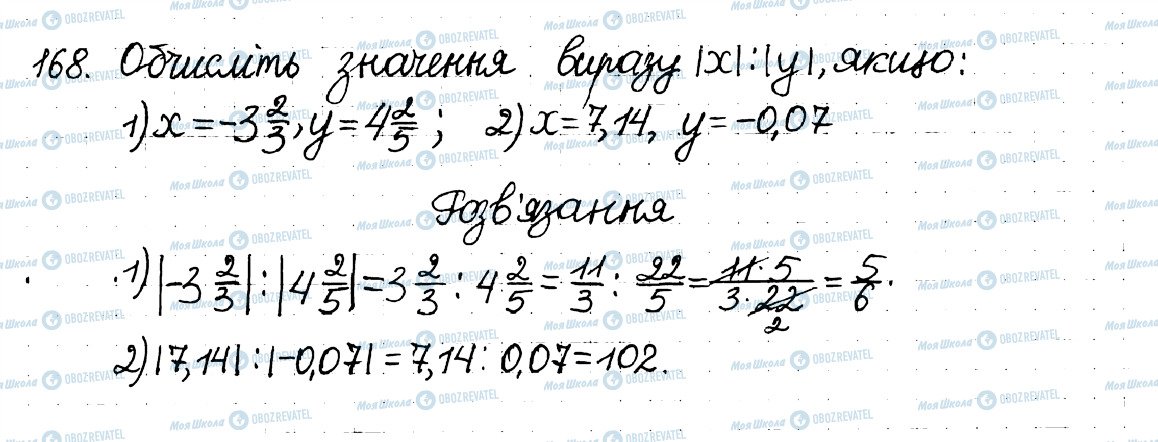 168. Обчисліть значення виразу |x|:|y|, якщо:
1) x = -3 2/3, y = 4 2/5; 2) x = 7,14, y = -0,07
Розв'язання
1) |-3 2/3| : |4 2/5| = 3 2/3 : 4 2/5 = 11/3 : 22/5 = 11·5/3·22 2 = 5/6.
2) |7,14| : |-0,07| = 7,14 : 0,07 = 102.